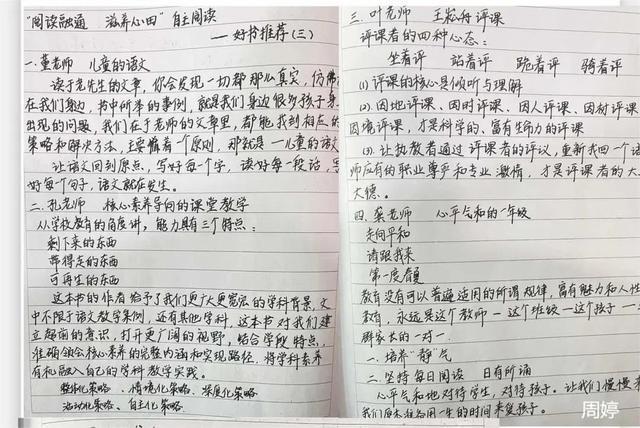 "阅读融通 滋养心田"自主阅读
——好书推荐(三)
一.董老师 儿童的语文
读于老先生的文章,你会发现一切都那么真实,仿佛
在我们身边,书中所举的事例,就是我们身边很多孩子身
出现的问题,我们在于老师的文章里,都能找到相应的
策略和解决方法,主要循着一个原则,那就是——儿童的语文
让语文回到原点,写好每一个字,读好每一段话,写
好每个句子,语文就在发生。
二.孔老师 核心素养导向的课堂教学
从学校教育的角度讲,能力具有三个特点:
剩下来的东西
带得走的东西
可再生的东西
这本书的作者给予了我们更广大更宽宏的学科背景,文
中不限于语文教学案例,还有其他学科,这本书对我们建
立超前的意识,打开更广阔的视野,结合学段特点,
准确领会核心素养的完整内涵和实现路径,将学科素养
有机融入自己的学科教学实践。
整体化策略、情境化策略、深度化策略
活动化策略、自主化策略
三.叶老师 王崧舟评课
评课者的四种心态:
坐着评 站着评 跪着评 骑着评
(1)评课的核心是倾听与理解
(2)因地评课、因时评课、因人评课、因材评课
因境评课,才是科学的、富有生命力的评课
(3)让执教者通过评课者的评议,重新找回一个语
师应有的职业尊严和专业激情,才是评课者的大
大德。
四.龚老师 心平气和的一年级
走向平和
请跟我来
第一度春夏
教育没有可以普遍适用的所谓规律,富有魅力和人性
教育,永远是这个教师一这个班级一这个孩子一
群家长的一对一.
一.培养"静"气
二.坚持每日阅读 日有所诵
心平气和地对待学生,对待孩子。让我们慢慢来
我们原本就是用一生的时间来爱孩子。
周婷